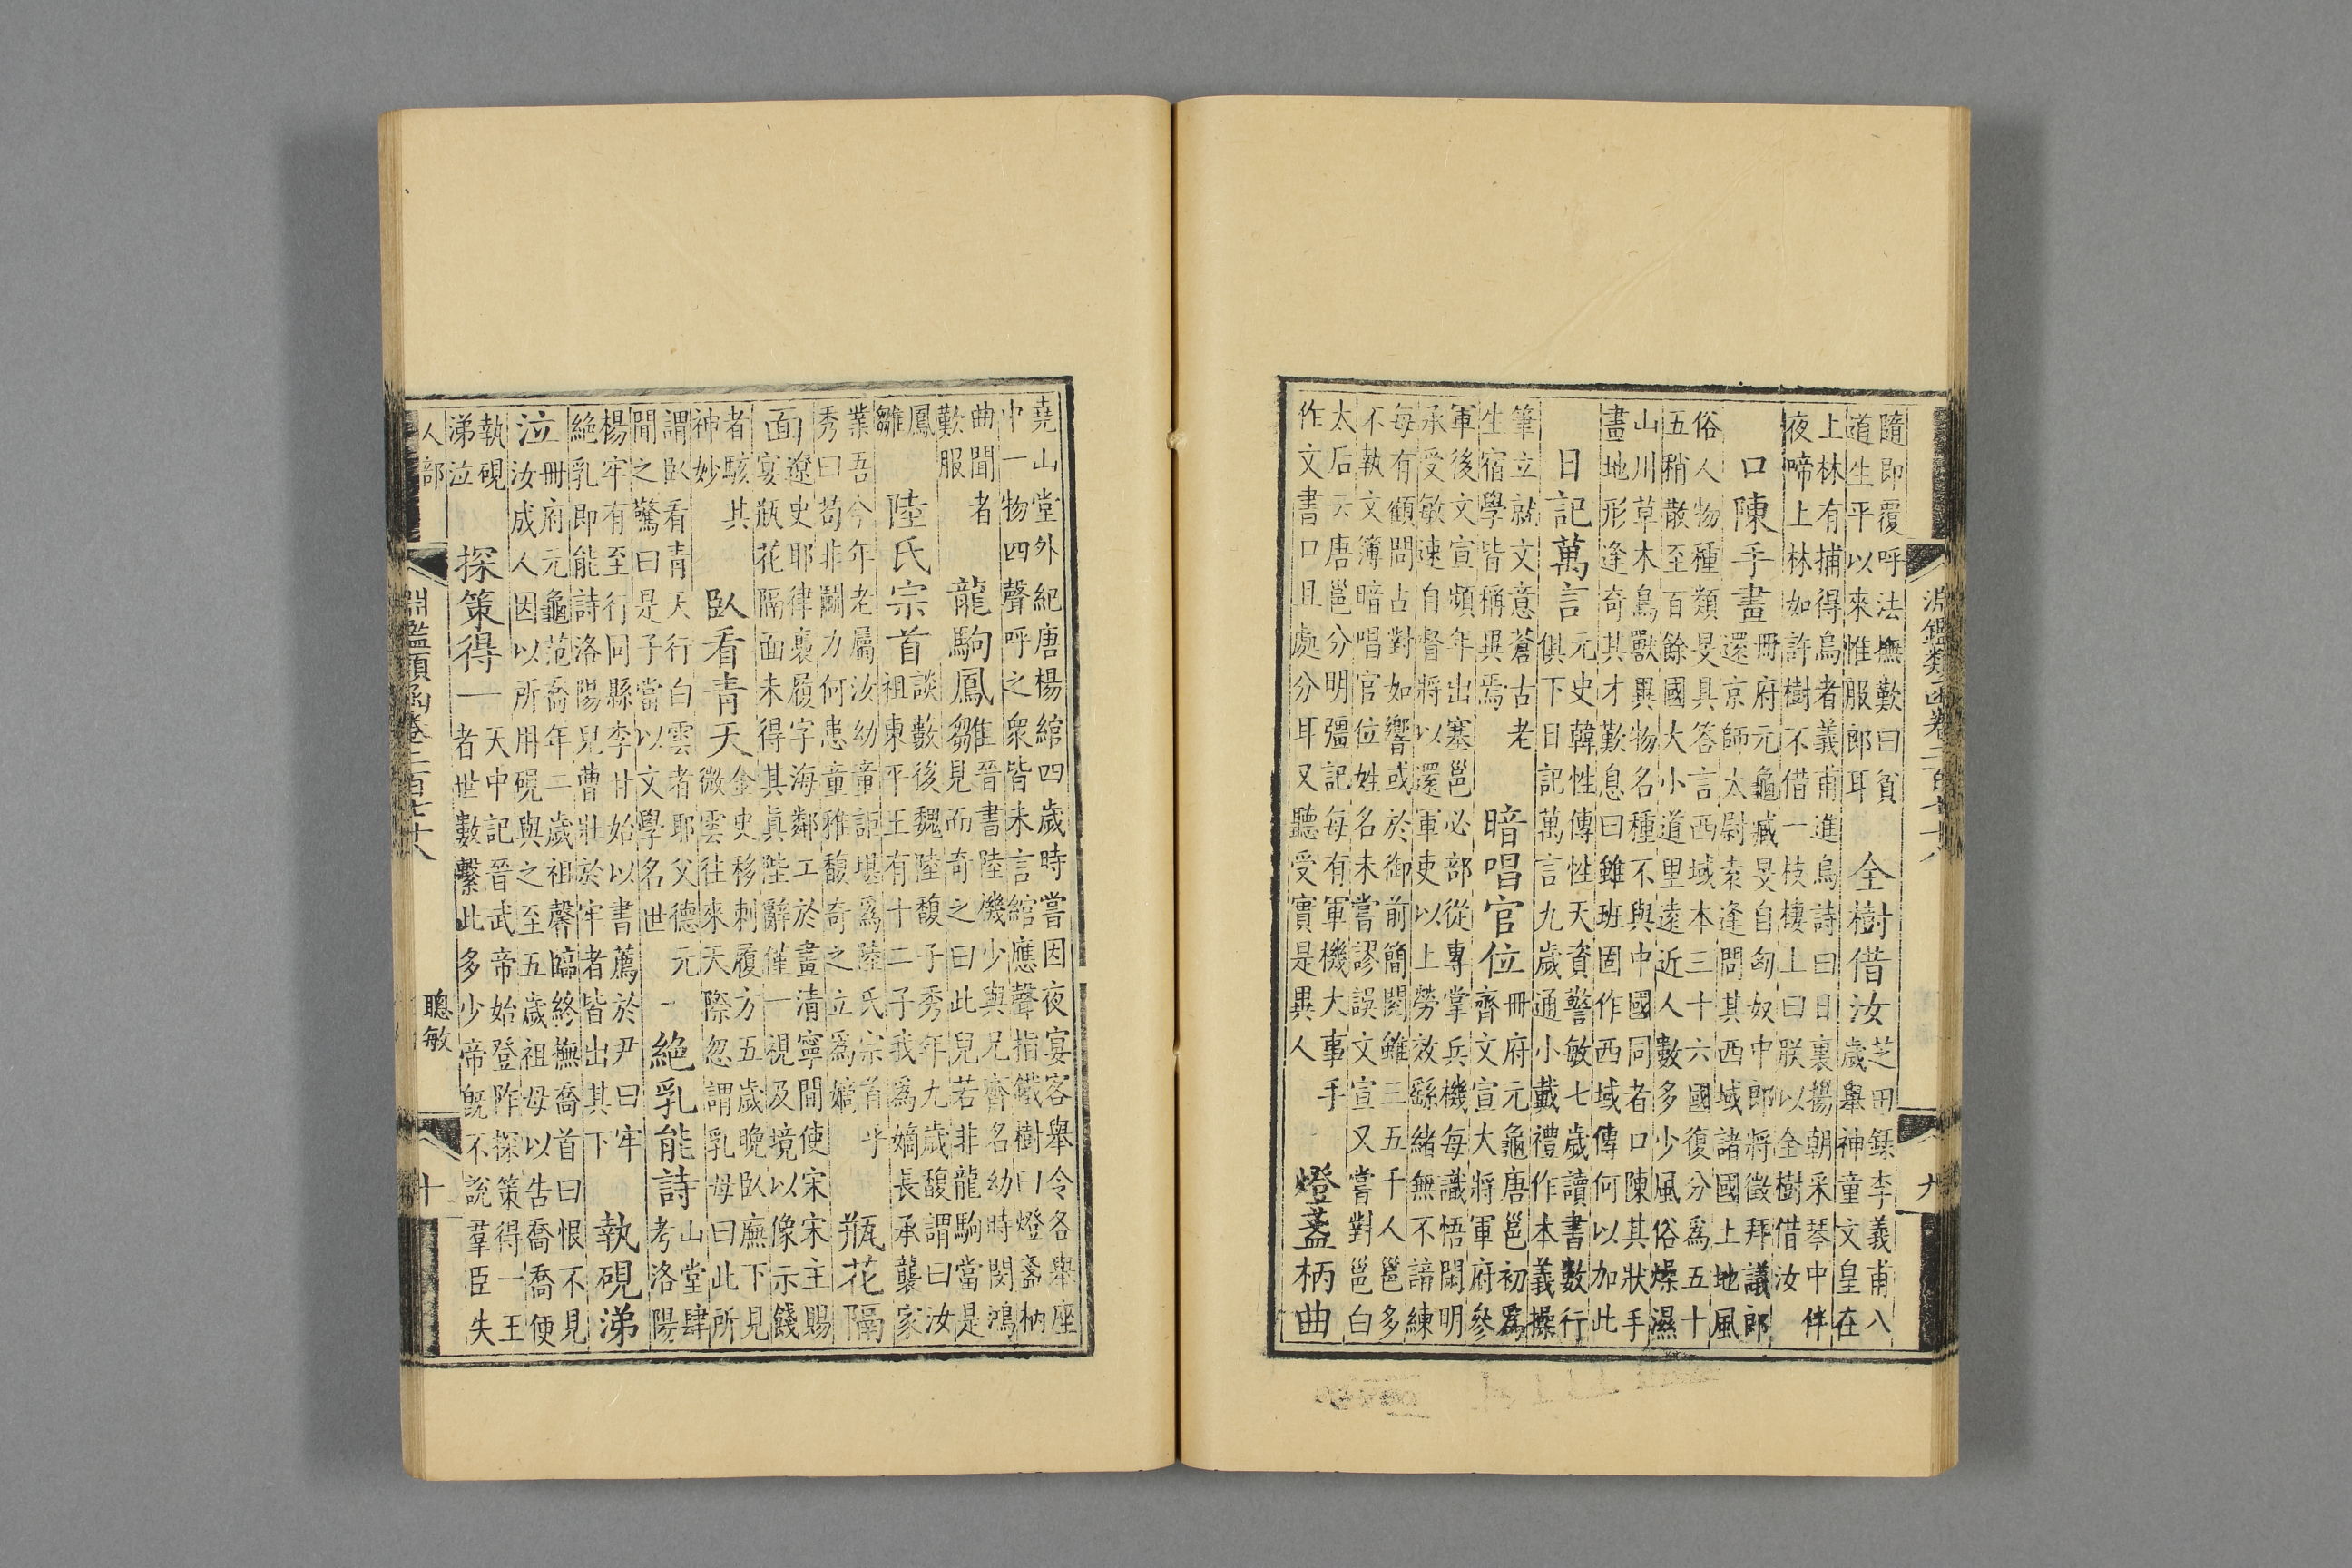 淵鑑類函卷二百七十八
九
隨即覆呼法撫歎曰貧
道生平以來惟服郎耳
全樹借汝
芝田錄李義甫八
歲舉神童文皇在
上林有捕得烏者義甫進烏詩曰日裏揚朝采琴中伴
夜啼上林如許樹不借一枝棲上曰朕以全樹借汝
口陳手畫
冊府元龜臧旻自匈奴中郎將徵拜議郎
還京師太尉袁逢問其西域諸國土地風
俗人物種類旻具答言西域本三十六國復分爲五十
五稍散至百餘國大小道里遠近人數多少風俗燥濕
山川草木鳥獸異物名種不與中國同者口陳其狀手
畫地形逢奇其才歎息曰雖班固作西域傳何以加此
日記萬言
元史韓性傳性天資警敏七歲讀書數行
俱下日記萬言九歲通小戴禮作本義操
筆立就文意蒼古老
生宿學皆稱異焉
暗唱官位
冊府元龜唐邕初爲
齊文宣大將軍府參
軍後文宣頻年出塞邕必部從專掌兵機每識悟閑明
承受敏速自督將以還軍吏以上勞效繇緒無不諳練
每有顧問占對如響或於御前簡閱雖三五千人邕多
不執文簿暗唱官位姓名未嘗謬誤文宣又嘗對邕白
太后云唐邕分明彊記每有軍機大事手
作文書口且處分耳又聽受實是異人
燈盞柄曲
堯山堂外紀唐楊綰四歲時嘗因夜宴客舉令各舉座
中一物四聲呼之衆皆未言綰應聲指鐵樹曰燈盞柄
曲聞者
歎服
龍駒鳳雛
晉書陸機少與兄齊名幼時閔鴻
見而奇之曰此兒若非龍駒當是
鳳
雛
陸氏宗首
談藪後魏陸馥子秀年九歲馥謂曰汝
祖東平王有十二子我爲嫡長承襲家
業吾今年老屬汝幼童詎堪爲陸氏宗首乎
秀曰苟非鬭力何患童稚馥奇之立爲嫡
瓶花隔
面
遼史耶律裹履字海鄰工於畫清寧間使宋宋主賜
宴瓶花隔面未得其真陛辭僅一視及境以像示餞
者駭其
神妙
臥看青天
金史移剌履方五歲晚臥廡下見
微雲往來天際忽謂乳母曰此所
謂臥看青天行白雲者耶父德元
聞之驚曰是子當以文學名世
絶乳能詩
山堂肆
考洛陽
楊牢有至行同縣李甘始以書薦於尹曰牢
絶乳即能詩洛陽兒曹壯於牢者皆出其下
執硯涕
泣
冊府元龜范喬年二歲祖馨臨終撫喬首曰恨不見
汝成人因以所用硯與之至五歲祖母以告喬喬便
執硯
涕泣
探策得一
天中記晉武帝始登阼探策得一王
者世數繫此多少帝旣不說羣臣失
人部
淵鑑類函卷二百七十八
聰敏
十